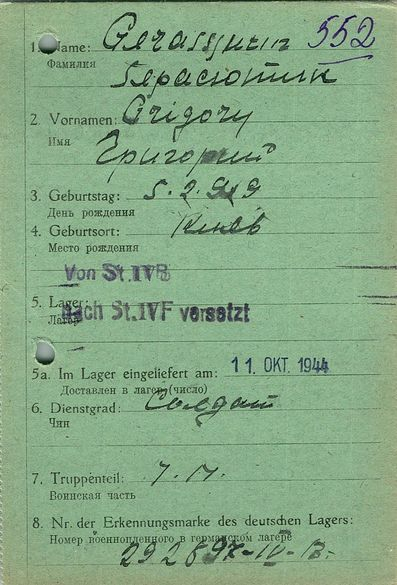 1. Name: 552
Фамилия
Герасютин
2. Vornamen: Grigory
Имя
Григорий
3. Geburtstag: 5.2.919
День рождения
4. Geburtsort: Киев
Место рождения
Von St.IVB
5. Lager: nach St.IVF versetzt
Лагерь
5a. Im Lager eingeliefert am: 11. OKT. 1944
Доставлен в лагерь (число)
6. Dienstgrad: Солдат
Чин
7. Truppenteil:
Воинская часть
8. Nr. der Erkennungsmarke des deutschen Lagers:
Номер военнопленного в германском лагере
292897-IV-B.